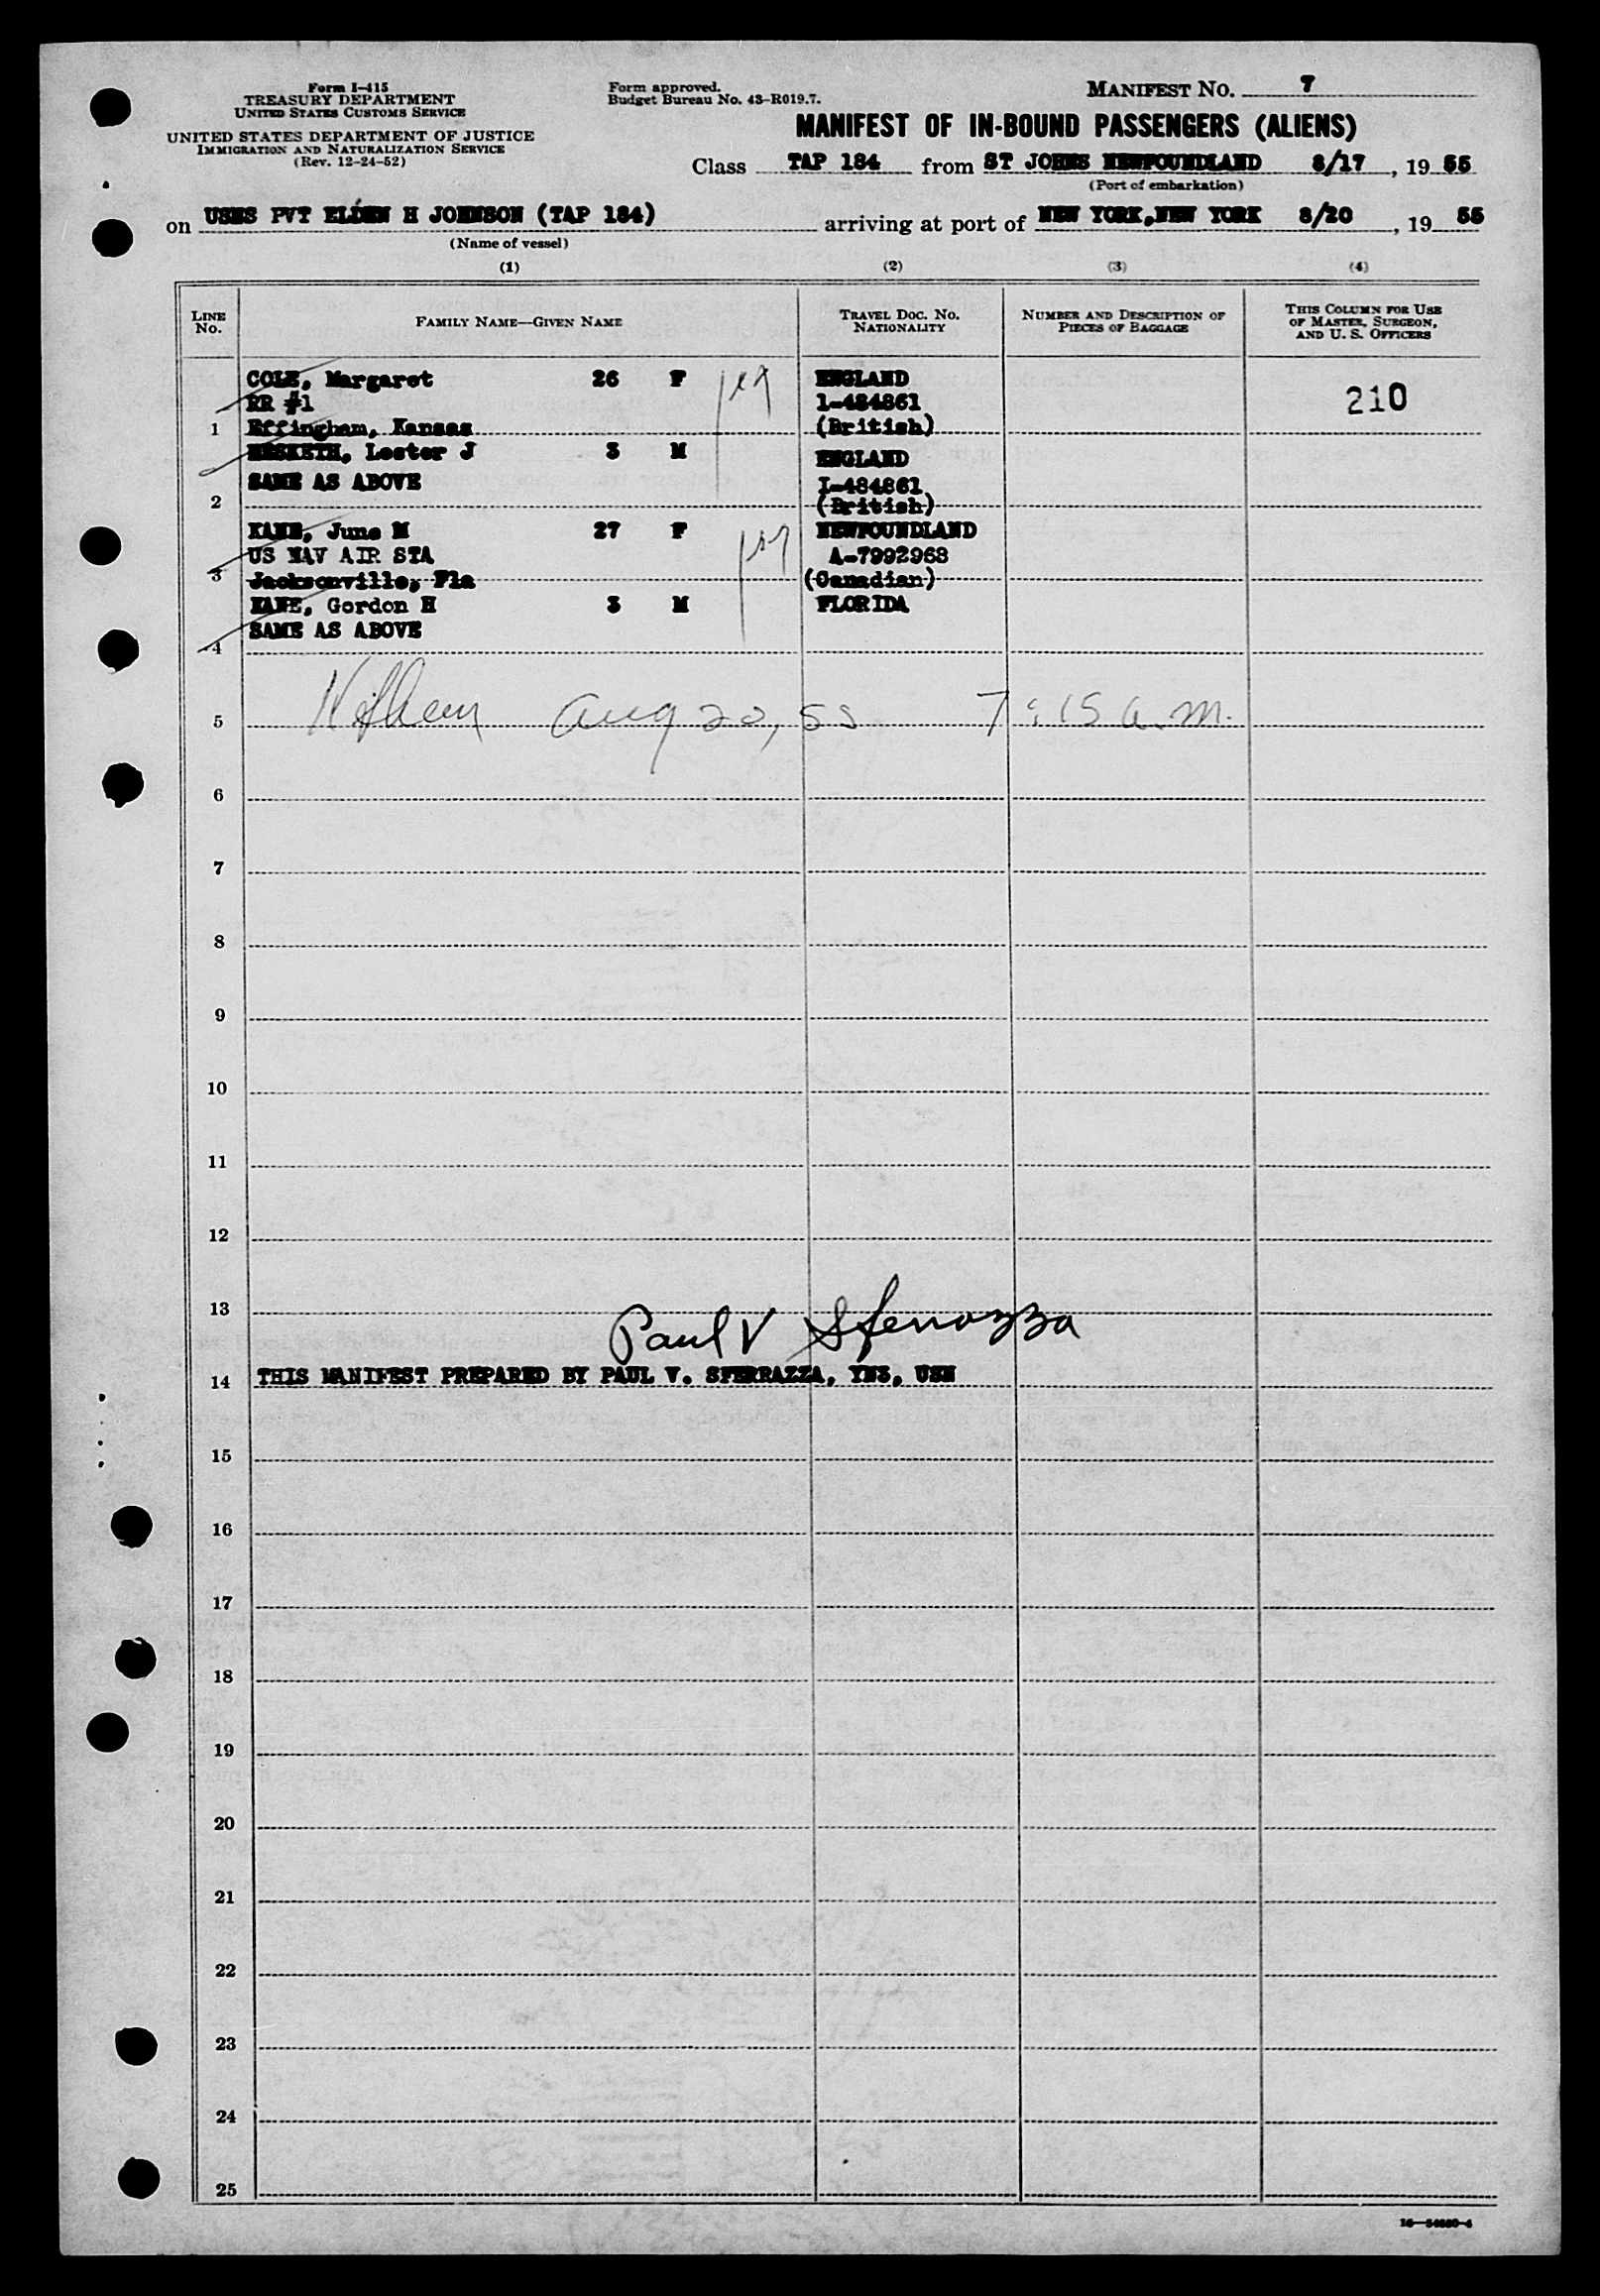 Form I-415
TREASURY DEPARTMENT
UNITED STATES CUSTOMS SERVICE
UNITED STATES DEPARTMENT OF JUSTICE
IMMIGRATION AND NATURALIZATION SERVICE
(Rev. 12-24-52)
Form approved.
Budget Bureau No. 43-R019.7.
MANIFEST NO. 7
MANIFEST OF IN-BOUND PASSENGERS (ALIENS)
Class TAP 184 from ST JOHNS NEWFOUNDLAND 8/17, 19 55
(Port of embarkation)
on USNS PVT ELDEN H JOHNSON (TAP 184) arriving at port of NEW YORK,NEW YORK 8/20, 19 55
(Name of vessel)
(1) (2) (3) (4)
LINE NO. FAMILY NAME—GIVEN NAME TRAVEL DOC. NO. NATIONALITY NUMBER AND DESCRIPTION OF PIECES OF BAGGAGE THIS COLUMN FOR USE OF MASTER, SURGEON, AND U. S. OFFICERS
COLE, Margaret 26 F ENGLAND
RR #1 1-484861 210
1 Effingham, Kansas (British)
HESKETH, Lester J 3 M ENGLAND
SAME AS ABOVE I-484861
2 (British)
KANE, June M 27 F NEWFOUNDLAND
US NAV AIR STA A-7992968
3 Jacksonville, Fla (Canadian)
KANE, Gordon H 3 M FLORIDA
SAME AS ABOVE
4
5 Aug 20, 55 7:15 a.m.
6
7
8
9
10
11
12
13
Paul V Sferrazza
14 THIS MANIFEST PREPARED BY PAUL V. SFERRAZZA, YN3, USN
15
16
17
18
19
20
21
22
23
24
25